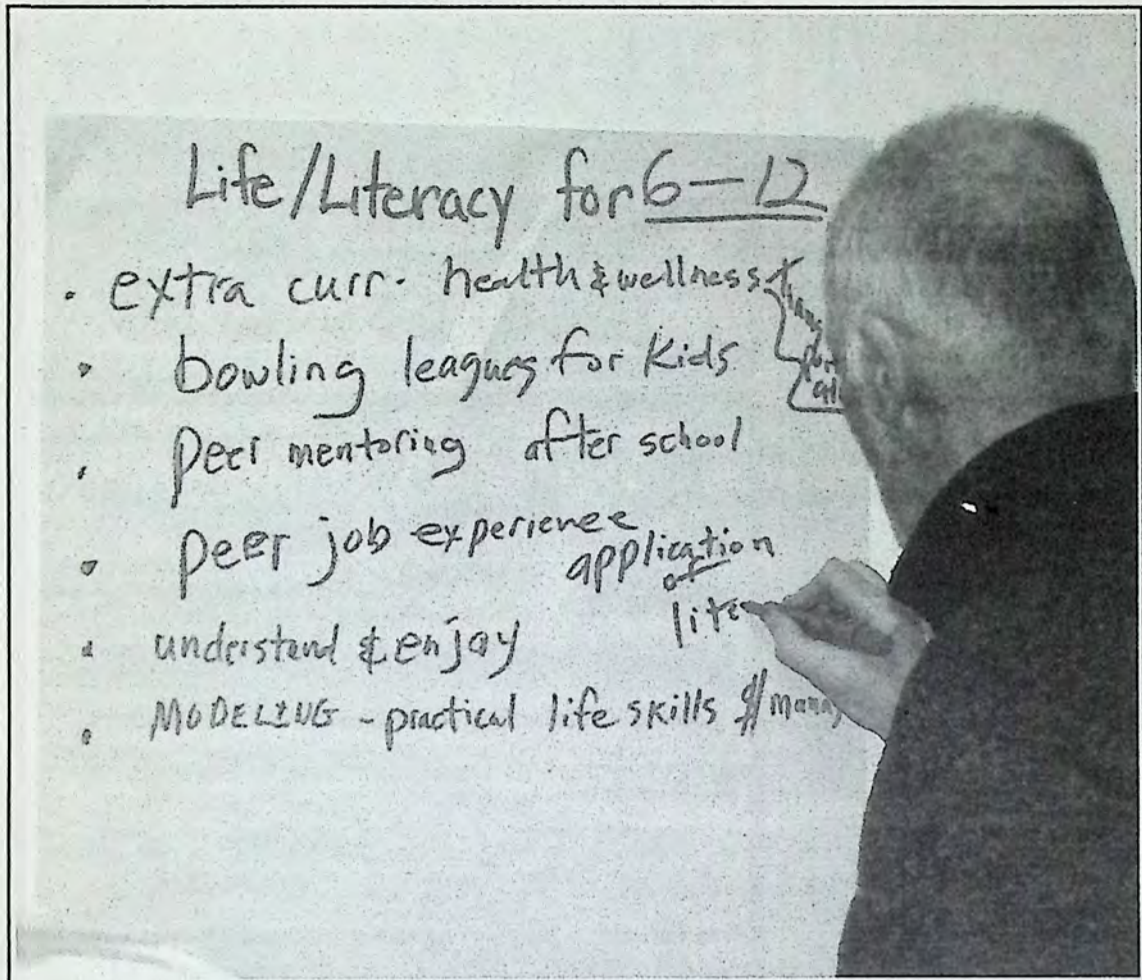 Life/Literacy for 6-12
• extra curr. health & wellness
• bowling leagues for Kids
• peer mentoring after school
• peer job experience
application
of
lite
• understand & enjoy
• MODELING - practical life skills $/